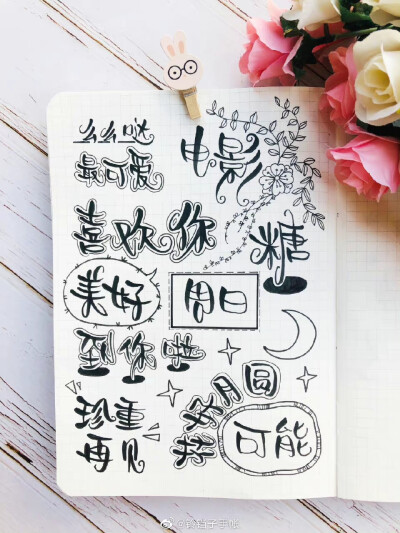 么么哒
最可爱
电影
喜欢你
糖
美好
周日
到你啦
花好月圆
珍重
再见
可能